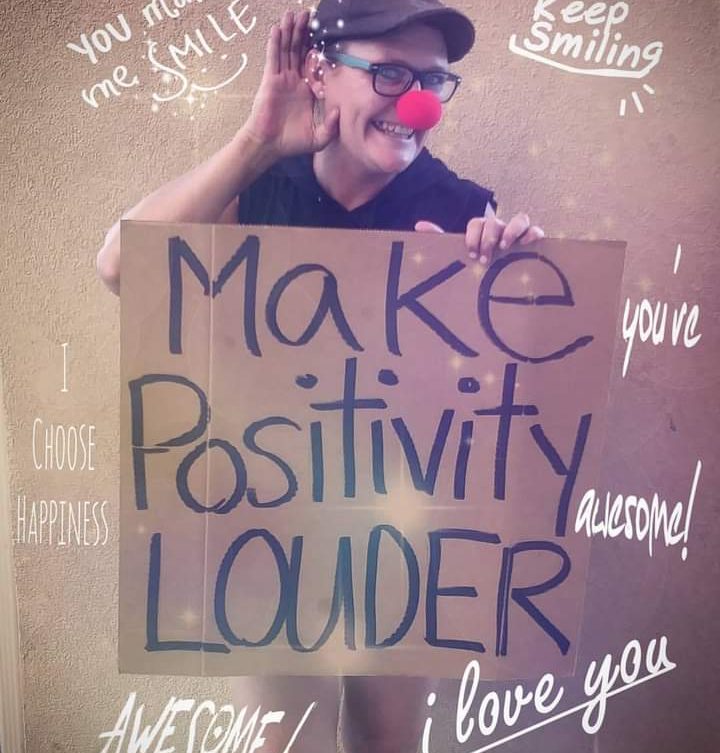 You
me SMILE
Keep
Smiling
Make
Positivity
LOUDER
I
CHOOSE
HAPPINESS
you're
awesome!
AWESOME!
i love you